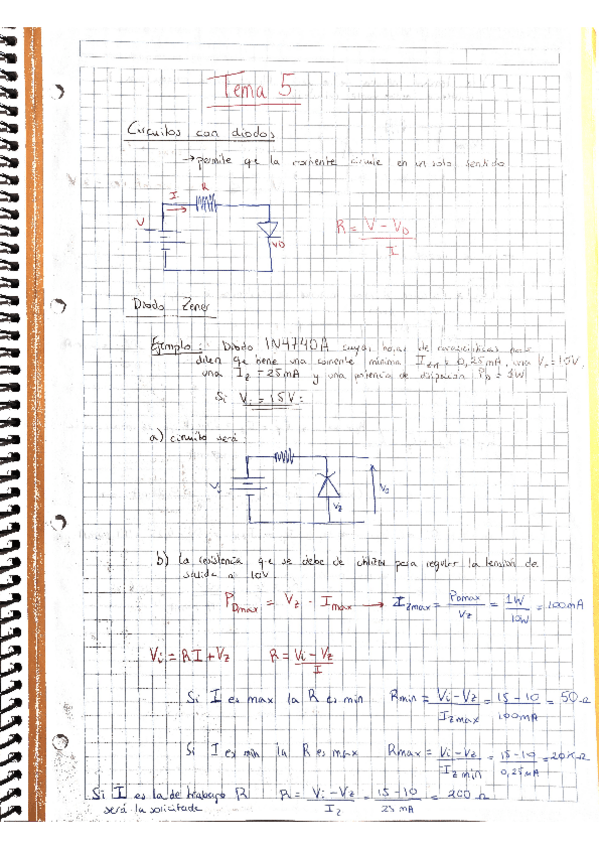 Tema 5
Circuitos con diodos
→ permite que la corriente circule en un solo sentido
I R
V VD
R = V - VD / I
Diodo Zener
Ejemplo: Diodo 1N4740A cuyas hojas de características
dicen que tiene una corriente mínima 0,25mA, una Vz = 10V,
una Iz = 25mA y una potencia de disipación PD = 1W
Si Vi = 15V:
a) circuito será
Vi Vz Vo
b) la resistencia que se debe de utilizar para regular la tensión de
salida a 10V
PDmax = Vz · Imax → IZmax = PDmax / Vz = 1W / 10W = 100mA
Vi = RI + Vz R = Vi - Vz / I
Si I es max la R es min Rmin = Vi - Vz / IZmax = 15 - 10 / 100mA = 50Ω
Si I es min la R es max Rmax = Vi - Vz / IZmin = 15 - 10 / 0,25mA = 20KΩ
Si I es la de trabajo R R = Vi - Vz / Iz = 15 - 10 / 25mA = 200Ω
será la solicitada